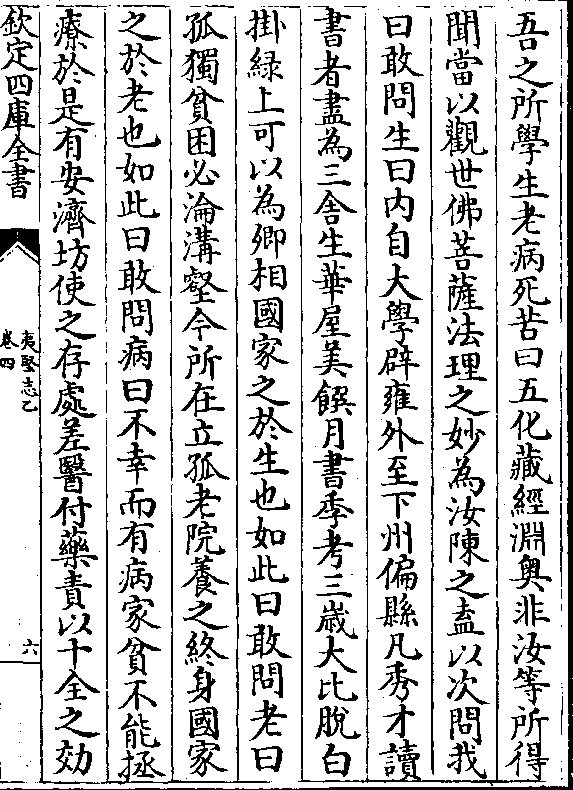 吾之所學生老病死苦曰五化藏經淵奥非汝等所得
聞當以觀世佛菩薩法理之妙為汝陳之盍以次問我
曰敢問生曰内自大學辟雍外至下州偏縣凡秀才讀
書者盡為三舍生華屋美饌月書季考三歳大比脫白
掛緑上可以為卿相國家之於生也如此曰敢問老曰
孤獨貧困必淪溝壑今所在立孤老院養之終身國家
之於老也如此曰敢問病曰不幸而有病家貧不能拯
療於是有安濟坊使之存處差醫付藥責以十全之効
欽定四庫全書
夷堅志乙
卷四
六